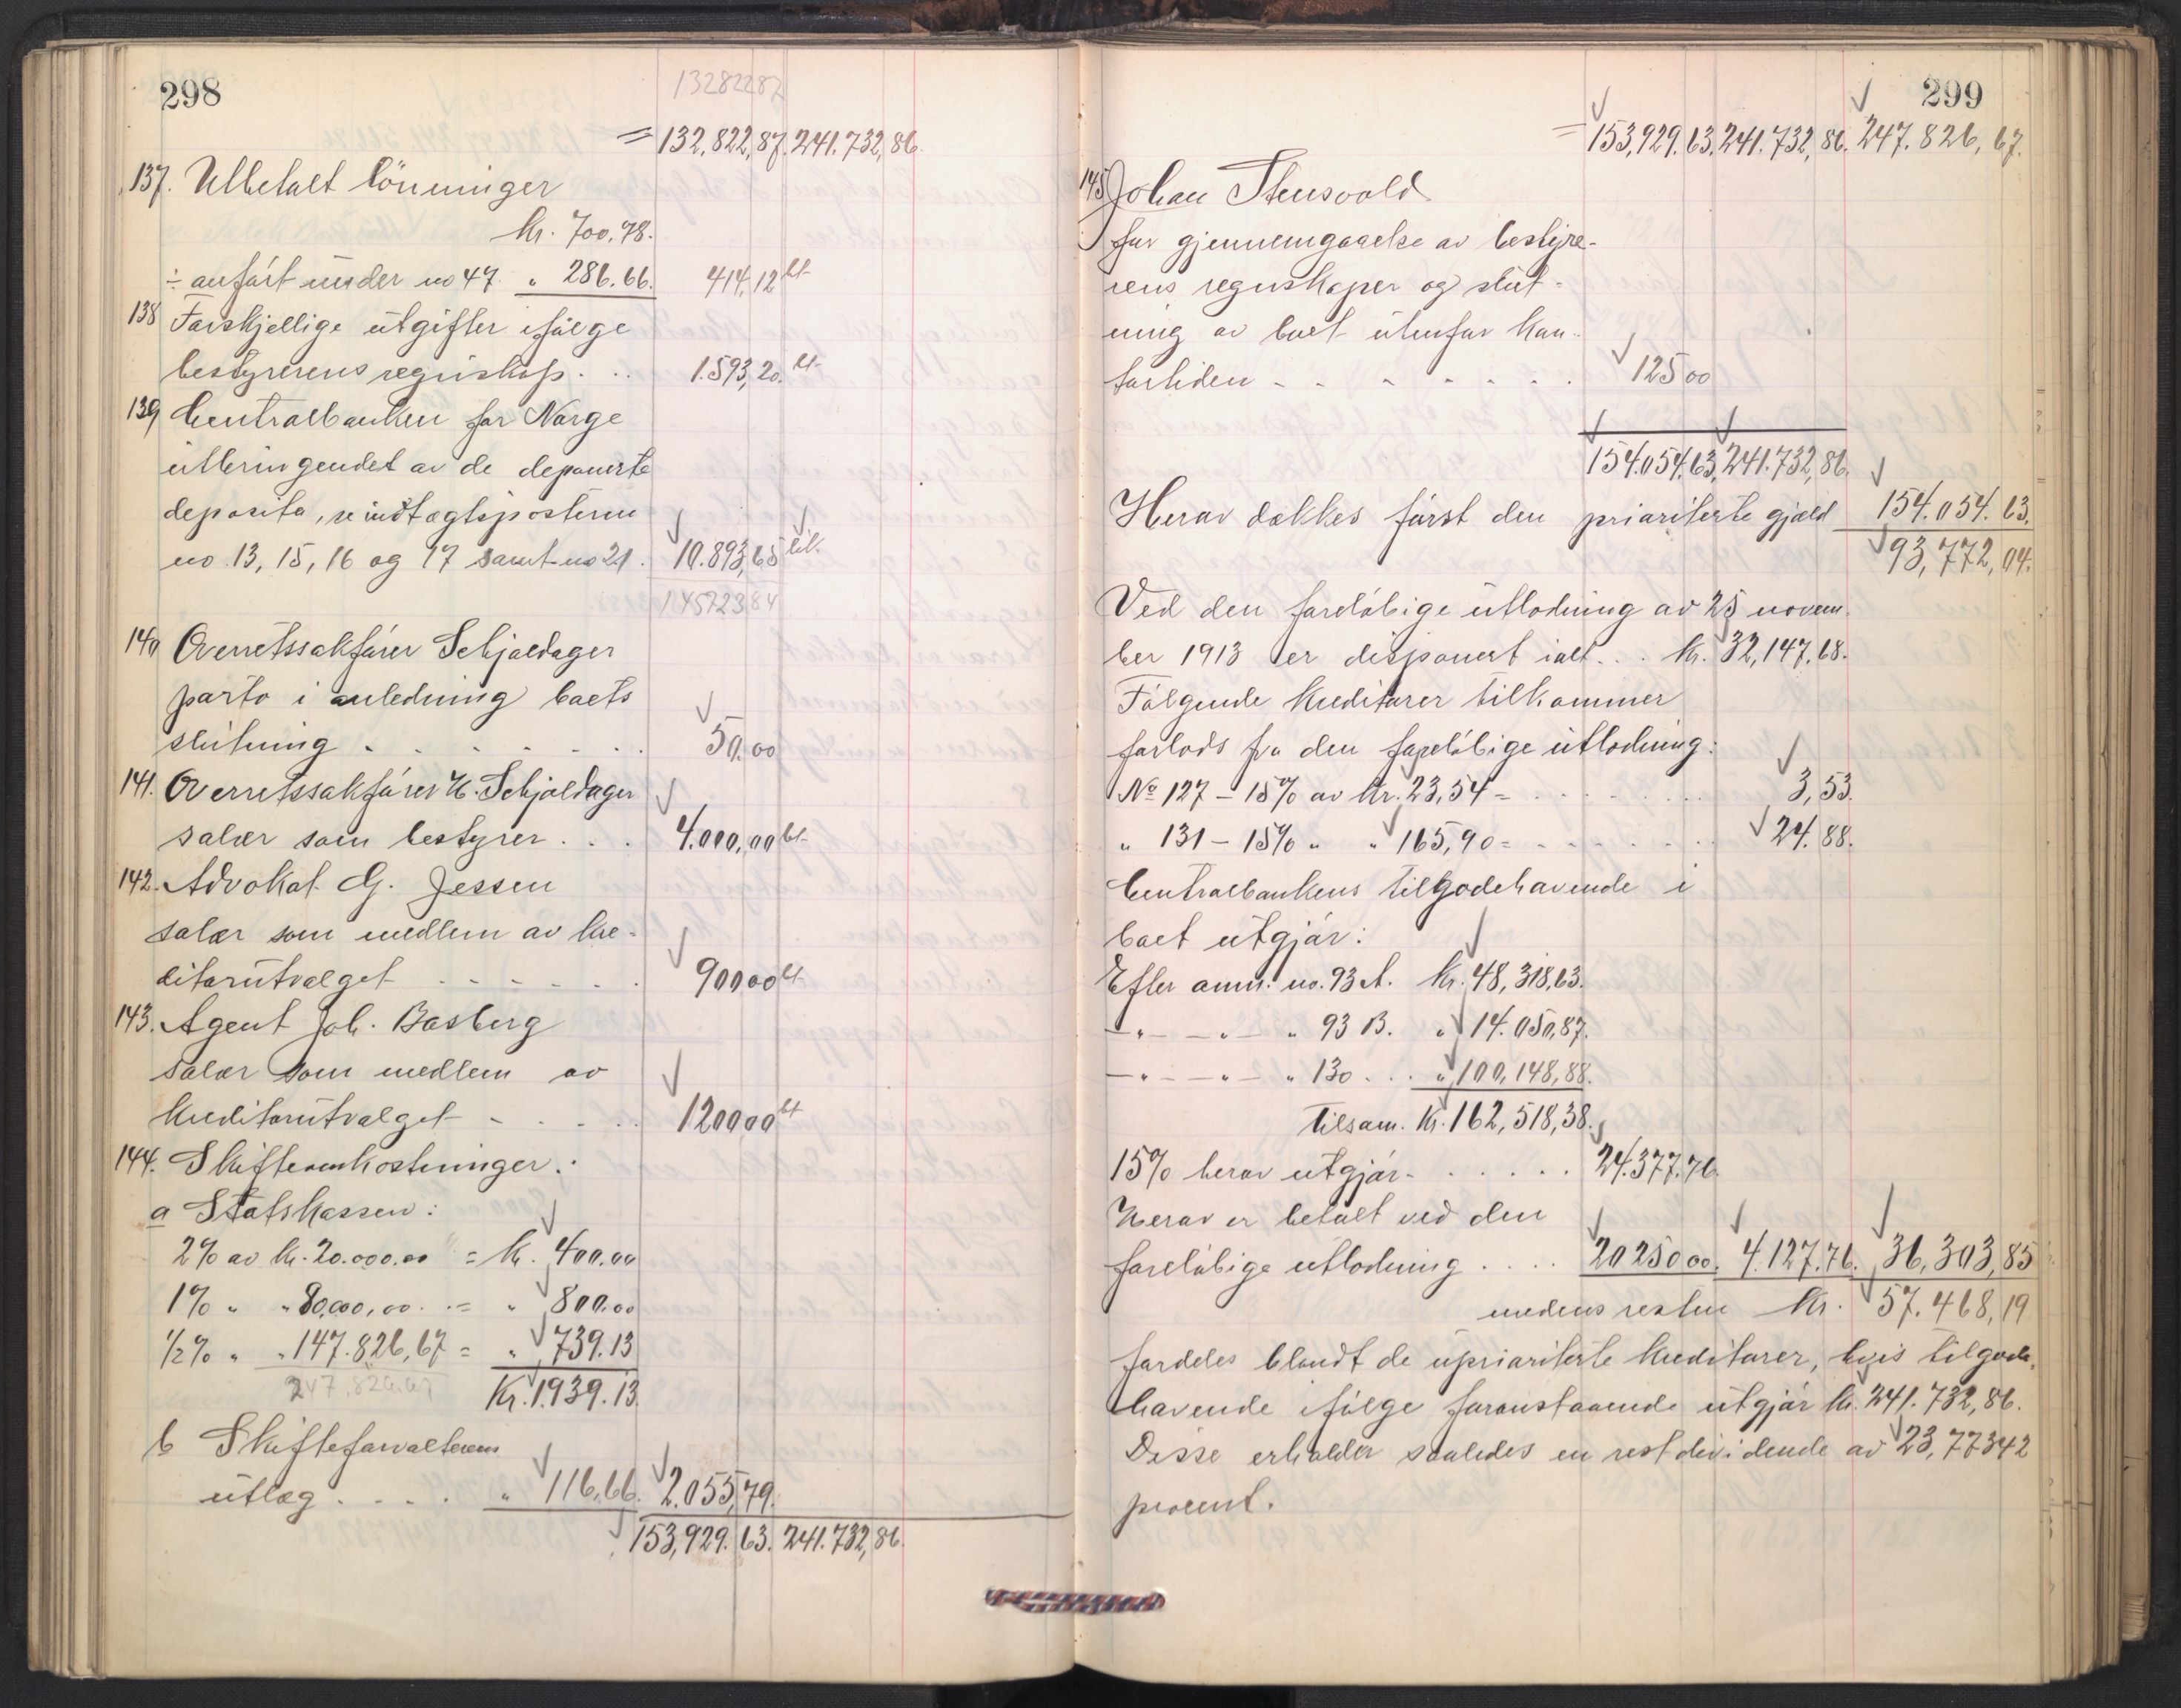 298
13282287
= 132,822,87. 241.732,86.
137. Ubetalt lönninger
kr. 700,78.
÷ anført under no 47 " 286.66. 414,12 bt
138 Forskjellige utgifter ifølge
bestyrerens regnskap . . . 1.593,20. bt
139 Centralbanken for Norge
utbringendet av de deponerte
deposita, se indtægtsposterne
no 13, 15, 16 og 17 samt no 21. 10.893,65
145723 84
140 Overretssakfører Schjoldager
porto i anledning boets
slutning . . . . . . . 50.00
141. Overretssakfører H. Schjoldager
salær som bestyrer . . . 4.000,00 bt
142. Advokat G. Jessen
salær som medlem av kre-
ditorutvalget - - - - - - 900 00 bt
143. Agent Joh. Basberg
salær som medlem av
kreditorutvalget - - - - - 1200 00 bt
144. Skifteomkostninger:
a Statskassen:
2% av kr. 20.000.00 = kr. 400.00
1% " " 80,000,00. = " 800.00
1/2% " " 147.826,67 = " 739.13
247.826.67 Kr. 1.939.13.
b Skifteforvalterens
utlæg . . . . " 116,66. 2.055,79.
153,929.63. 241.732,86.
299
= 153,929.63. 241.732,86. 247.826,67.
145 Johan Stensvold
for gjennemgaaelse av bestyre-
rens regnskaper og slut-
ning av boet utenfor kon-
tortiden - - - - - - . 125 00
154.054,63, 241.732,86.
Herav dækkes først den prioriterte gjæld 154.054.63.
93,772,04.
Ved den foreløbige utlodning av 25 novem-
ber 1913 er disponert ialt . . . kr. 32,147.68.
Følgende kreditorer tilkommer
forlods fra den foreløbige utlodning:
No 127 - 15% av kr. 23,54 = . . . . . . . 3,53.
" 131 - 15% " " 165,90 = - - - - - - - 24.88.
Centralbankens tilgodehavende i
boet utgjør:
Efter anm. no. 93 A. kr. 48,318,63.
- " - - " - " 93 B. " 14.050,87.
- " - - " - " 130 . . . " 100,148,88.
Tilsam. kr. 162,518,38.
15% herav utgjør - . . . . . . 24.377.76.
Herav er betalt ved den
foreløbige utlodning . . . . 20 250 00. 4.127.76. 36,303,85
medens resten kr. 57.468,19
fordeles blandt de uprioriterte kreditorer, hvis tilgode-
havende ifølge foranstaaende utgjør kr. 241.732,86.
Disse erholder saaledes en restdividende av 23,77342
procent.